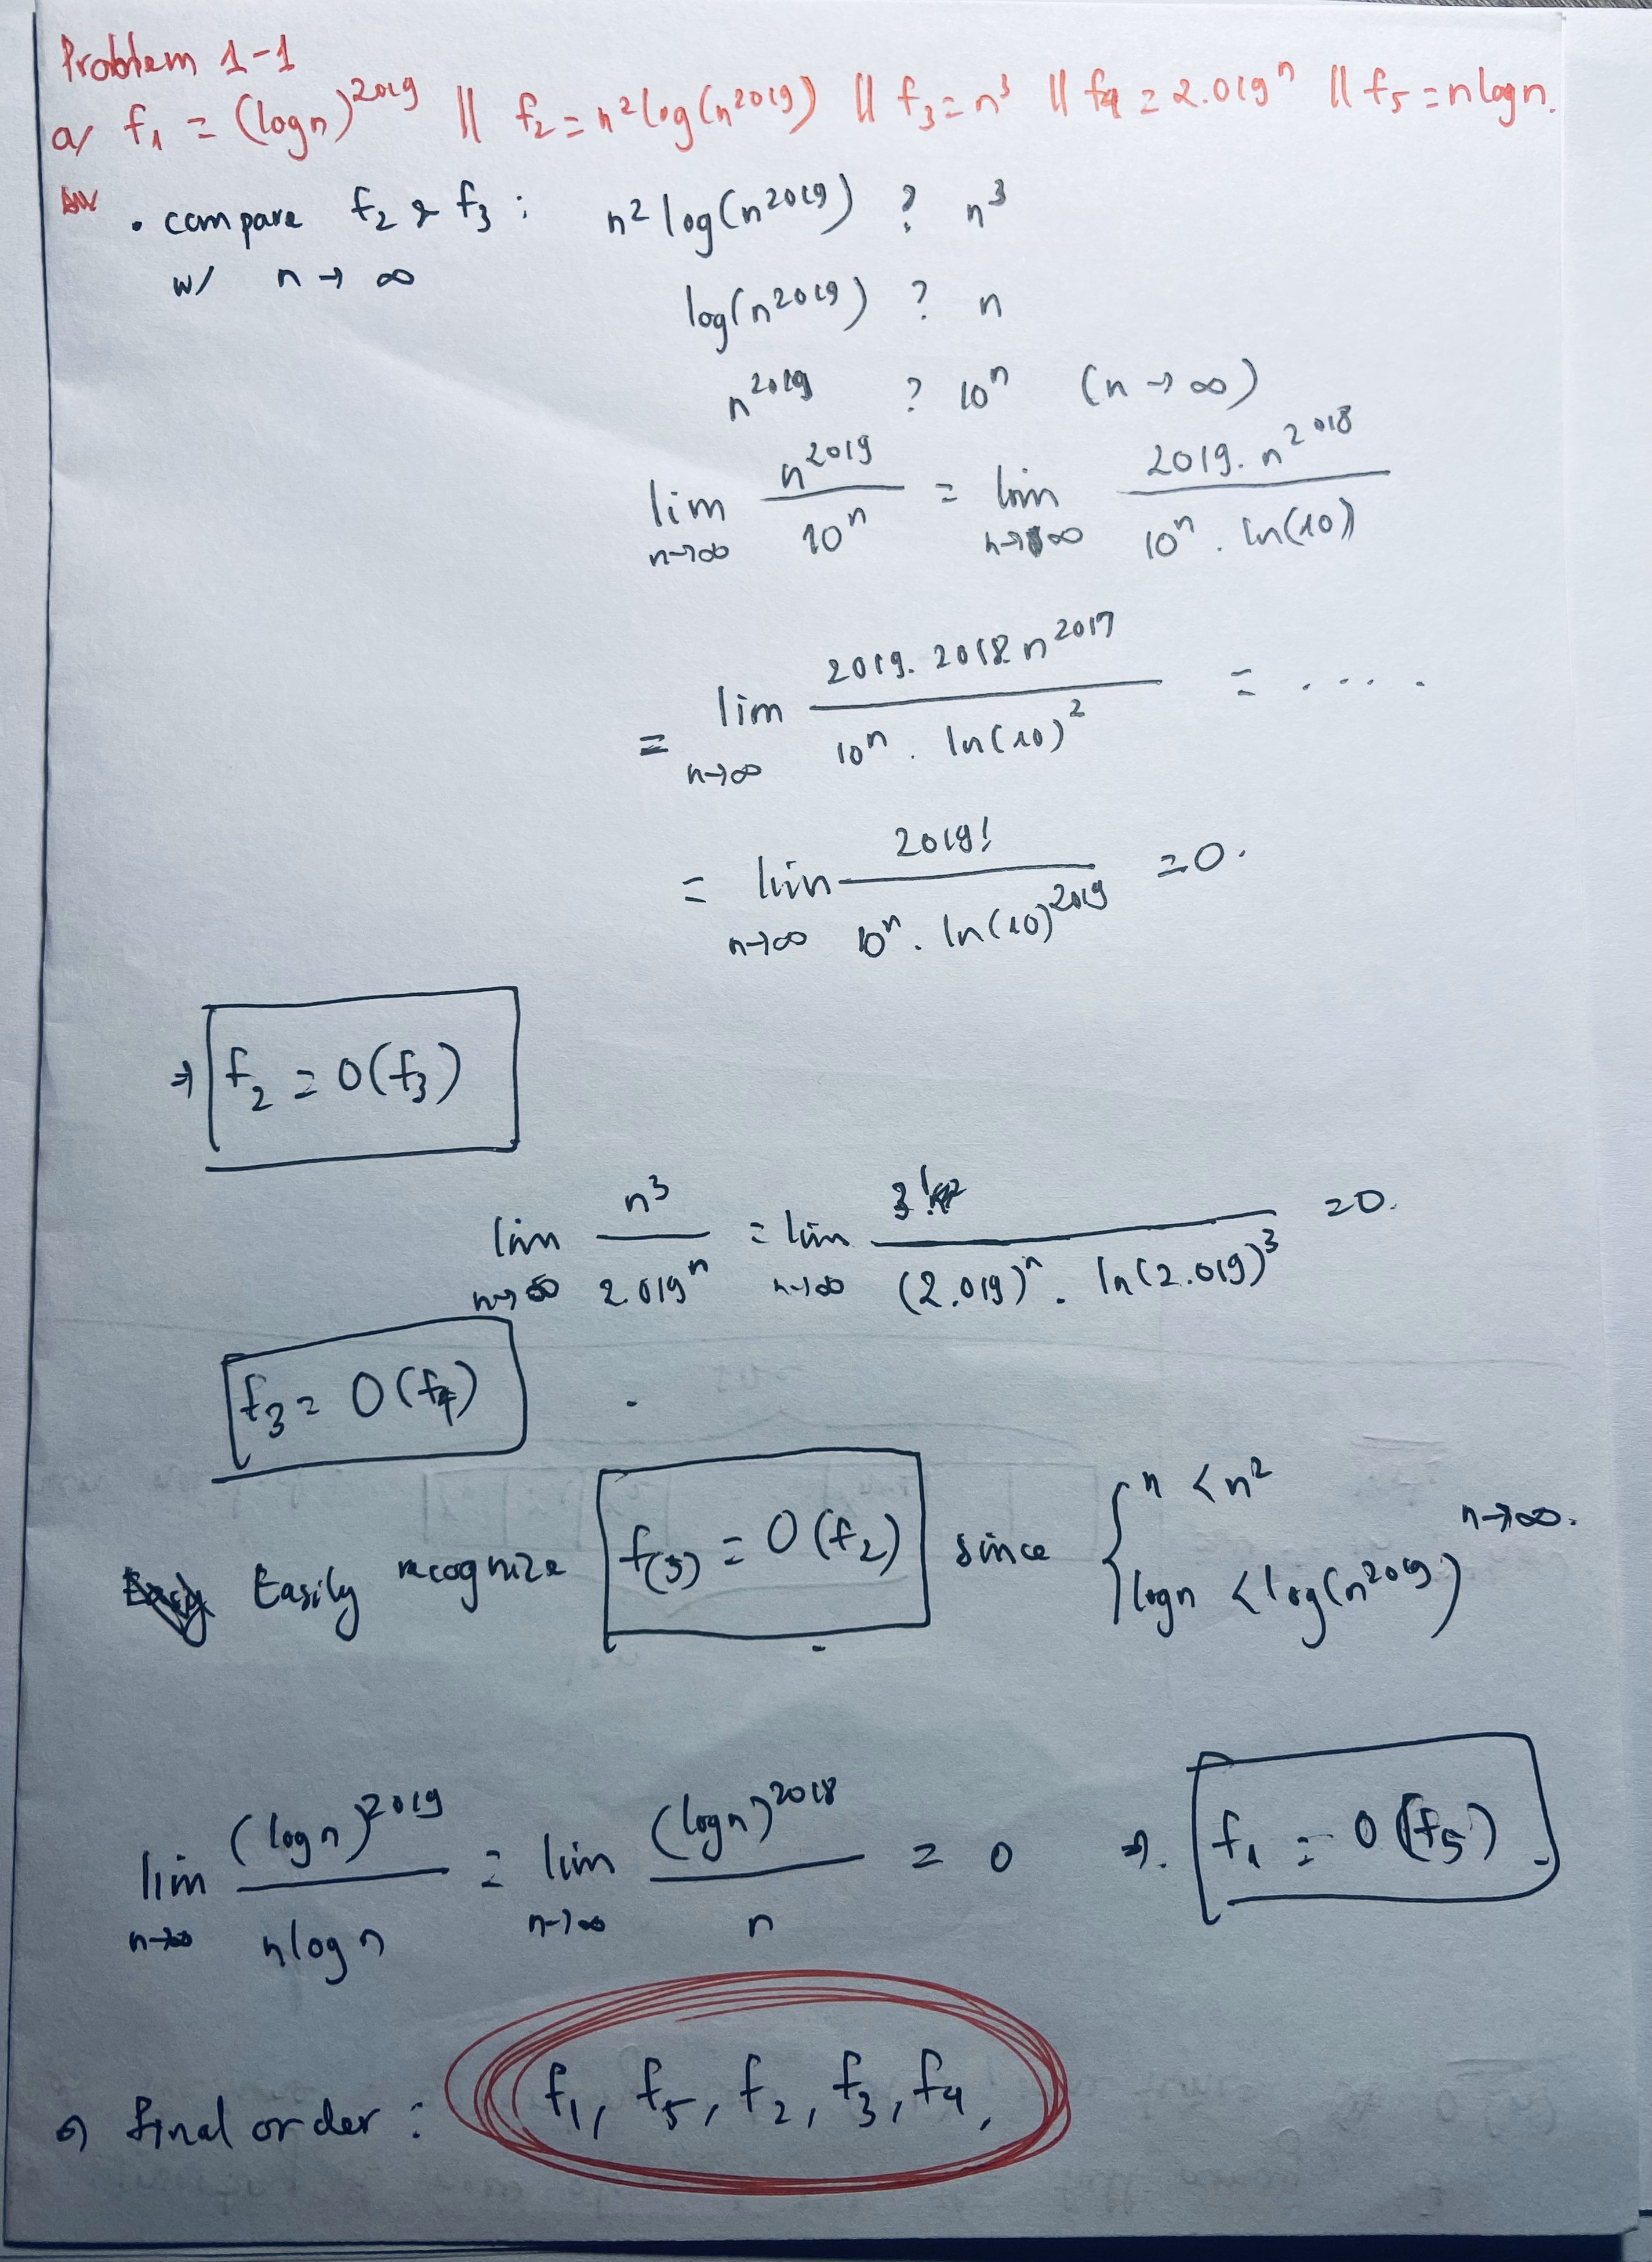 Problem 1-1
a/ f₁ = (logn)²⁰¹⁹ || f₂ = n²log(n²⁰¹⁹) || f₃ = n³ || f₄ = 2.019ⁿ || f₅ = nlogn.
• compare f₂ & f₃ : n² log(n²⁰¹⁹) ? n³
w/ n → ∞
log(n²⁰¹⁹) ? n
n²⁰¹⁹ ? 10ⁿ (n → ∞)
lim n→∞ n²⁰¹⁹ / 10ⁿ = lim n→∞ 2019. n²⁰¹⁸ / 10ⁿ . ln(10)
= lim n→∞ 2019. 2018 n²⁰¹⁷ / 10ⁿ . ln(10)² = . . . . .
= lim n→∞ 2019! / 10ⁿ. ln(10)²⁰¹⁹ = 0.
⇒ f₂ = O(f₃)
lim n→∞ n³ / 2.019ⁿ = lim n→∞ 3! / (2.019)ⁿ. ln(2.019)³ = 0.
f₃ = O(f₄)
Easily recognize f₍₅₎ = O(f₂) since { n < n²
logn < log(n²⁰¹⁹) n→∞.
lim n→∞ (logn)²⁰¹⁹ / nlogn = lim n→∞ (logn)²⁰¹⁸ / n = 0 ⇒. f₁ = O(f₅).
⇒ final order : f₁, f₅, f₂, f₃, f₄,